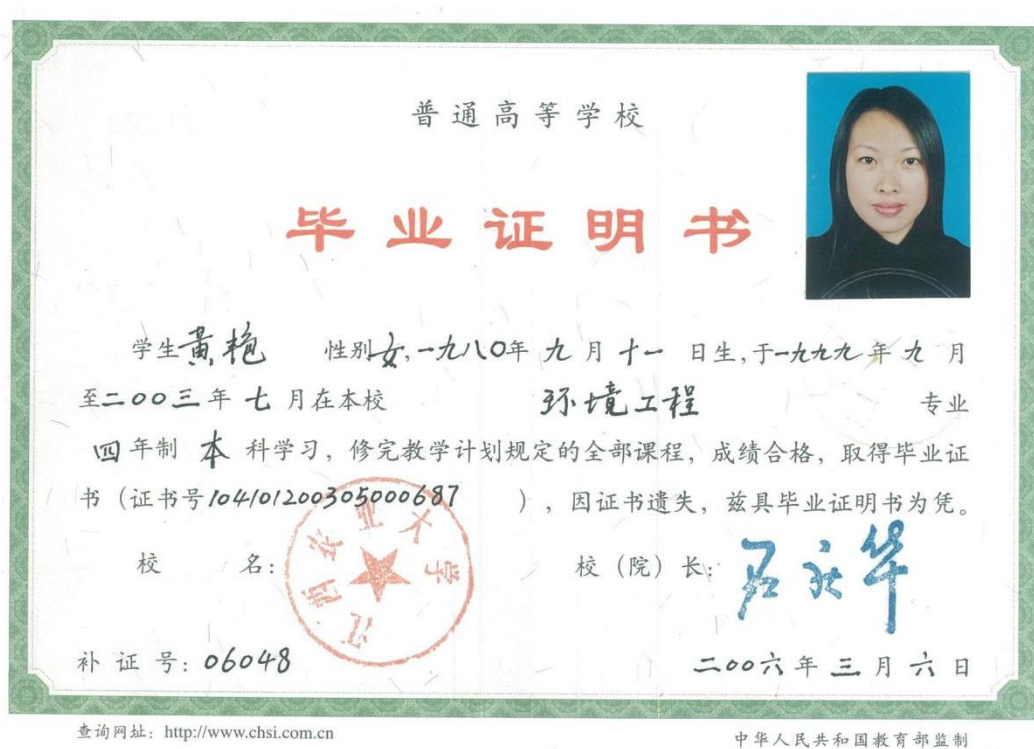 普通高等学校
毕业证明书
学生黄艳 性别女,一九八〇年九月十一日生,于一九九九年九月
至二〇〇三年七月在本校 环境工程 专业
四年制本科学习,修完教学计划规定的全部课程,成绩合格,取得毕业证
书(证书号104101200305000687),因证书遗失,兹具毕业证明书为凭。
校 名: 校(院)长: 石庆华
江西农业大学
补证号:06048 二〇〇六年三月六日
查询网址:http://www.chsi.com.cn 中华人民共和国教育部监制